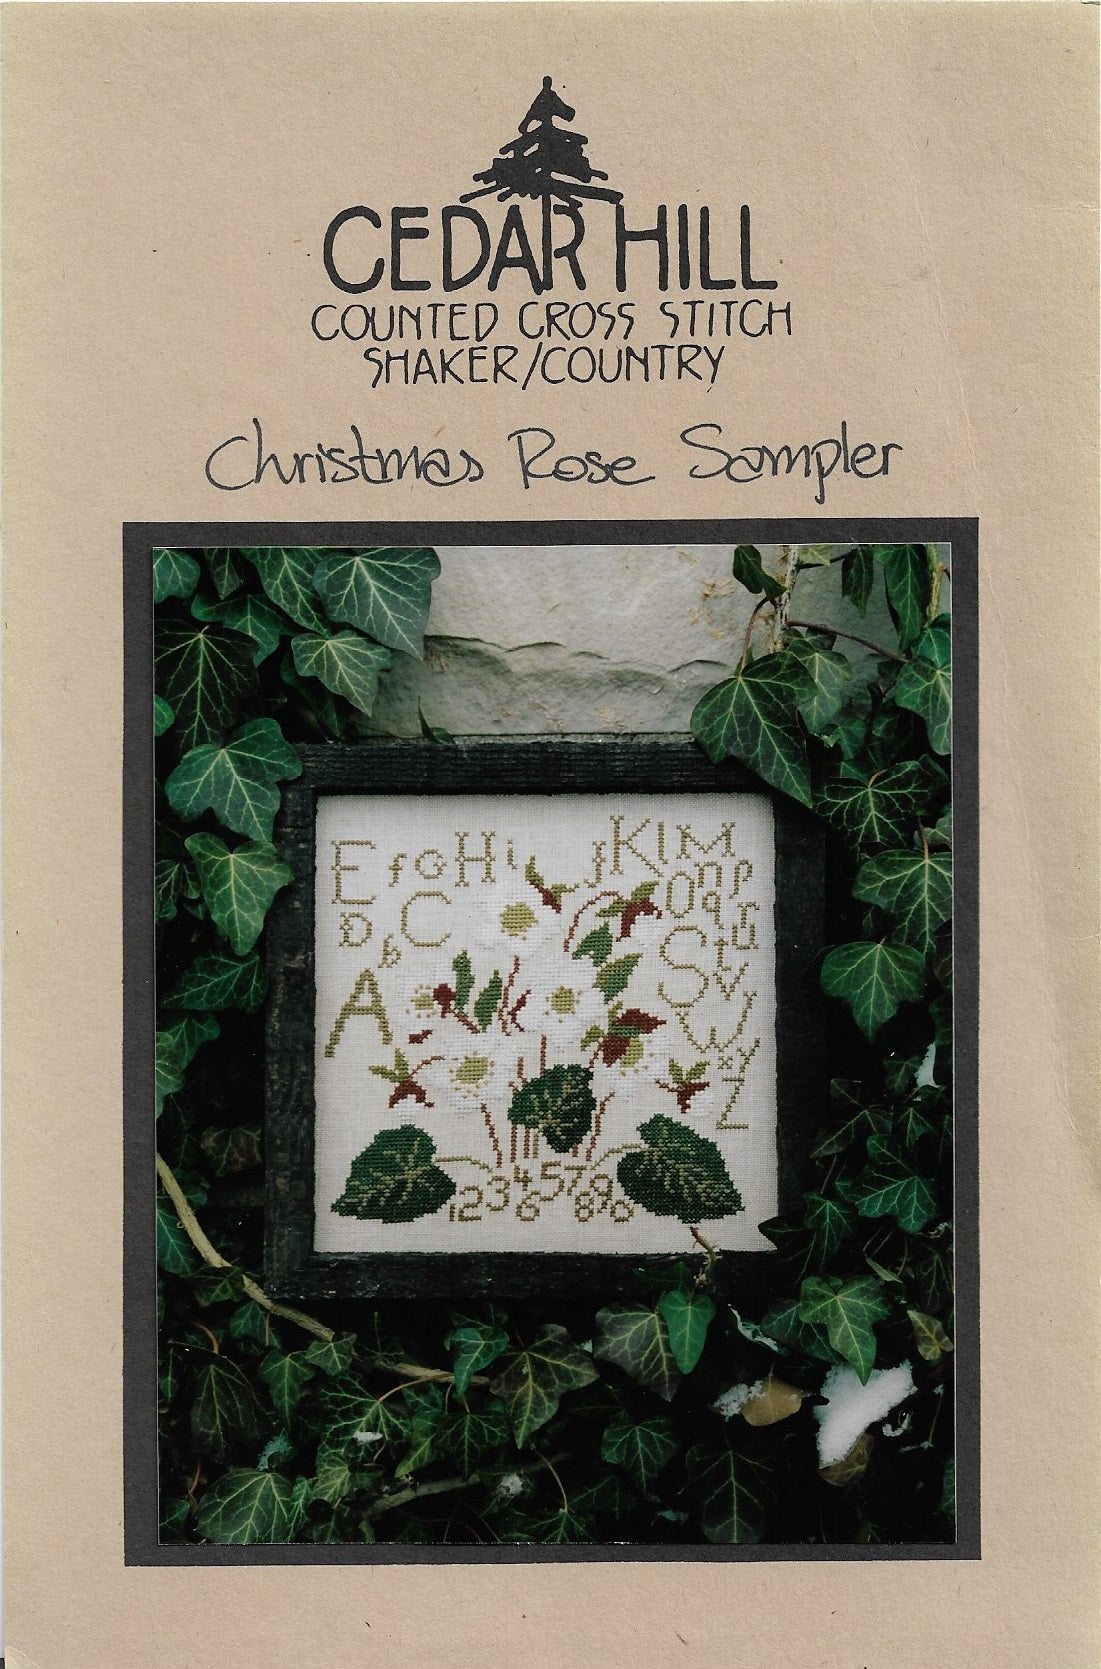 CEDAR HILL
COUNTED CROSS STITCH
SHAKER/COUNTRY
Christmas Rose Sampler
E f G H i j K l M
D b C O n p
q r
S t u
A v
W
x y
Z
1 2 3 4 5 6 7 8 9 0